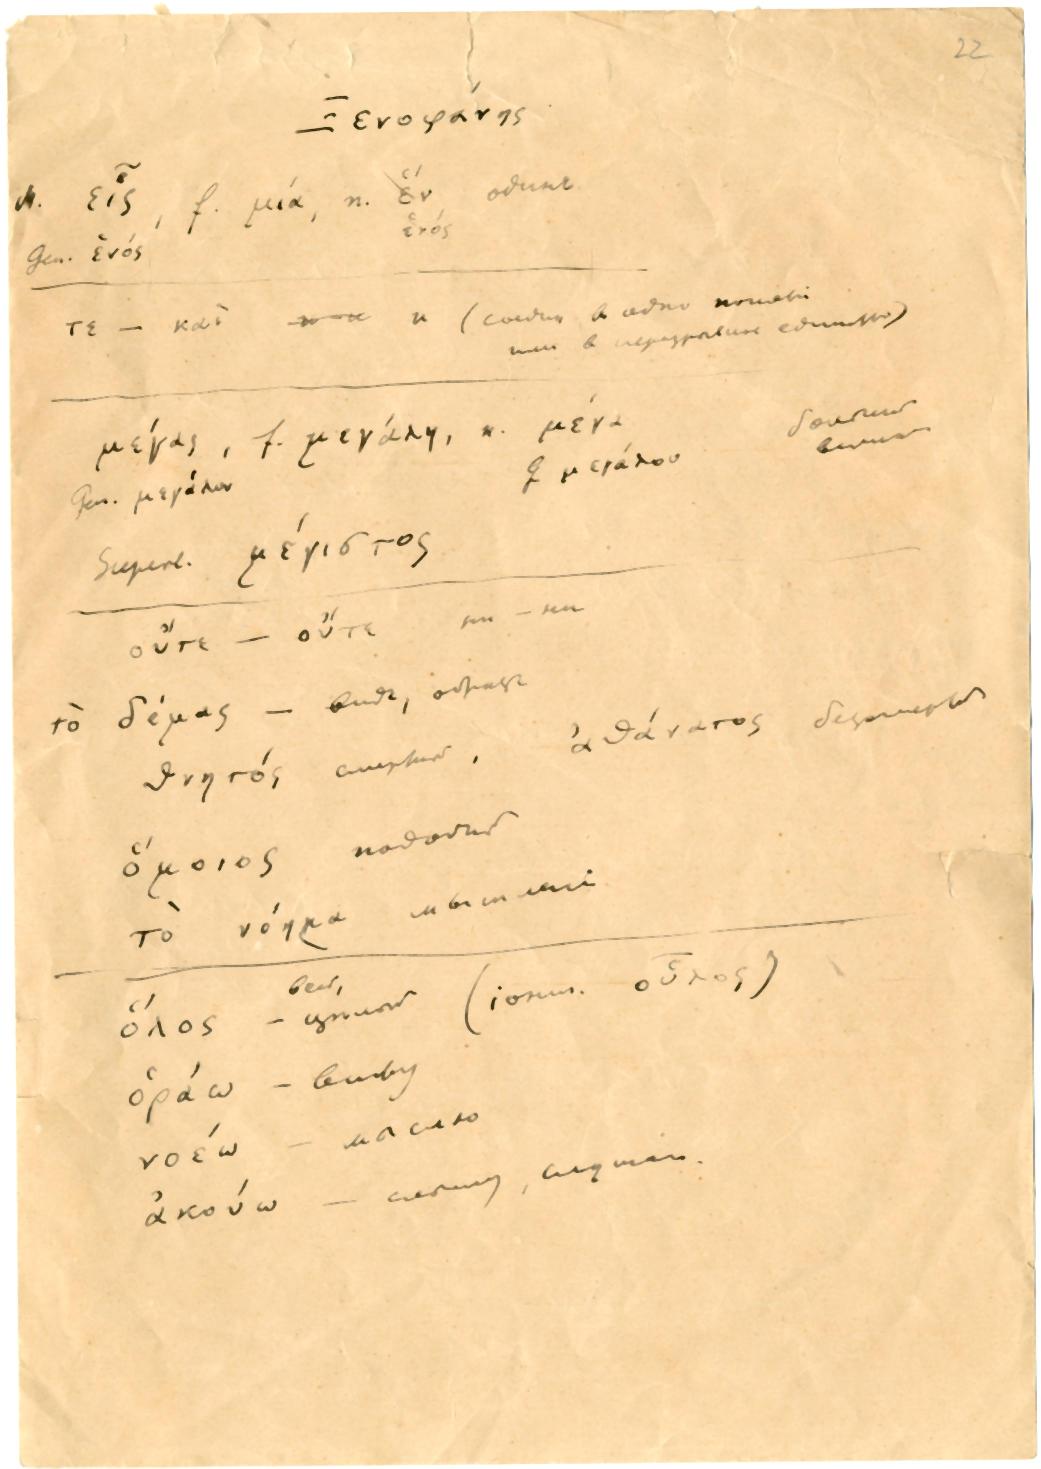 22
Ξενοφάνης
М. εἷς, f. μία, n. ἕν один
Gen. ἑνός ἑνός
τε — καὶ и (
μέγας, f. μεγάλη, n. μέγα большой
Gen. μεγάλου G μεγάλου великий
Superl. μέγιστος
οὔτε — οὔτε ни – ни
τὸ δέμας — вид, образ
θνητός смертный, ἀθάνατος бессмертный
ὅμοιος подобный
τὸ νόημα мышление
весь,
ὅλος — целый (ионич. οὖλος)
ὁράω — вижу
νοέω — мыслю
ἀκούω — слышу,